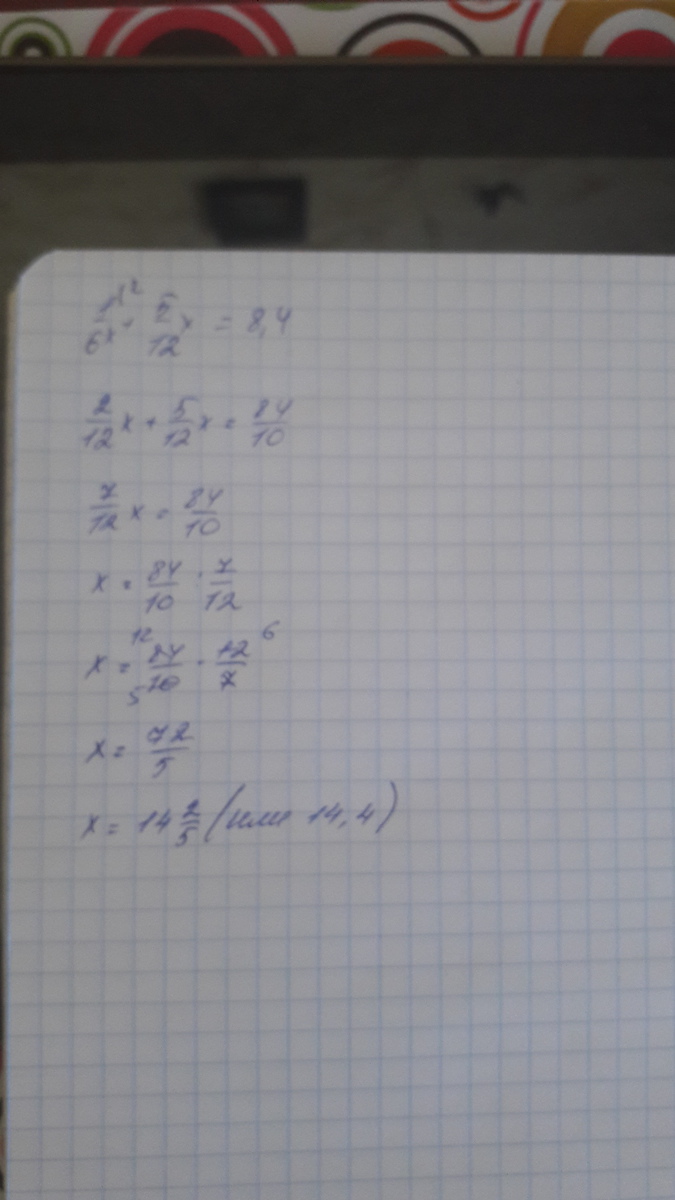 1/6 x + 5/12 x = 8,4
2/12 x + 5/12 x = 84/10
7/12 x = 84/10
x = 84/10 · 7/12
x = 84/10 · 12/7 12 5 6
x = 72/5
x = 14 2/5 (или 14,4)